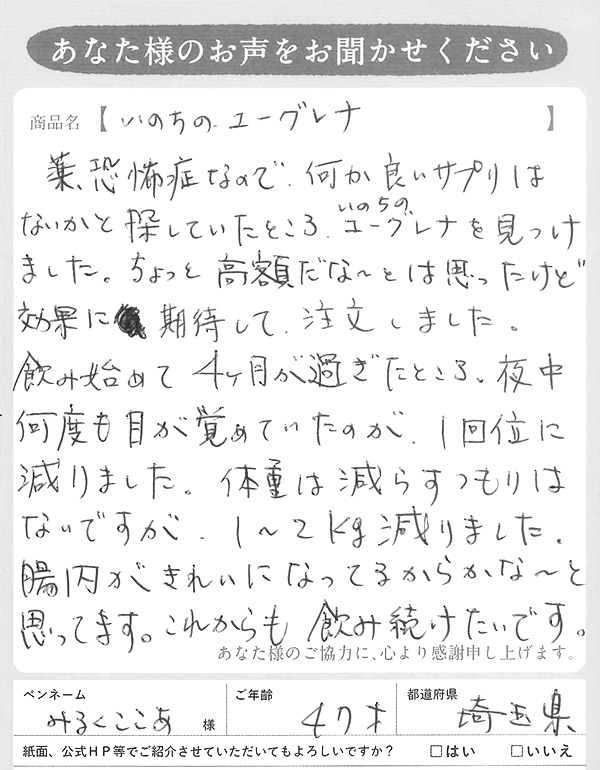 あなた様のお声をお聞かせください
商品名【いのちの.ユーグレナ】
薬、恐怖症なので、何か良いサプリは
ないかと探していたところ、いのちのユーグレナを見つけ
ました。ちょっと高額だな〜とは思ったけど
効果に期待して、注文しました。
飲み始めて4ヶ月が過ぎたところ。夜中
何度も目が覚めていたのが、1回位に
減りました。体重は減らすつもりは
ないですが、1〜2kg減りました。
腸内がきれいになってるからかな〜と
思ってます。これからも飲み続けたいです。
あなた様のご協力に、心より感謝申し上げます。
ペンネーム みるくここあ 様 ご年齢 47才 都道府県 埼玉県
紙面、公式HP等でご紹介させていただいてもよろしいですか？ □はい □いいえ